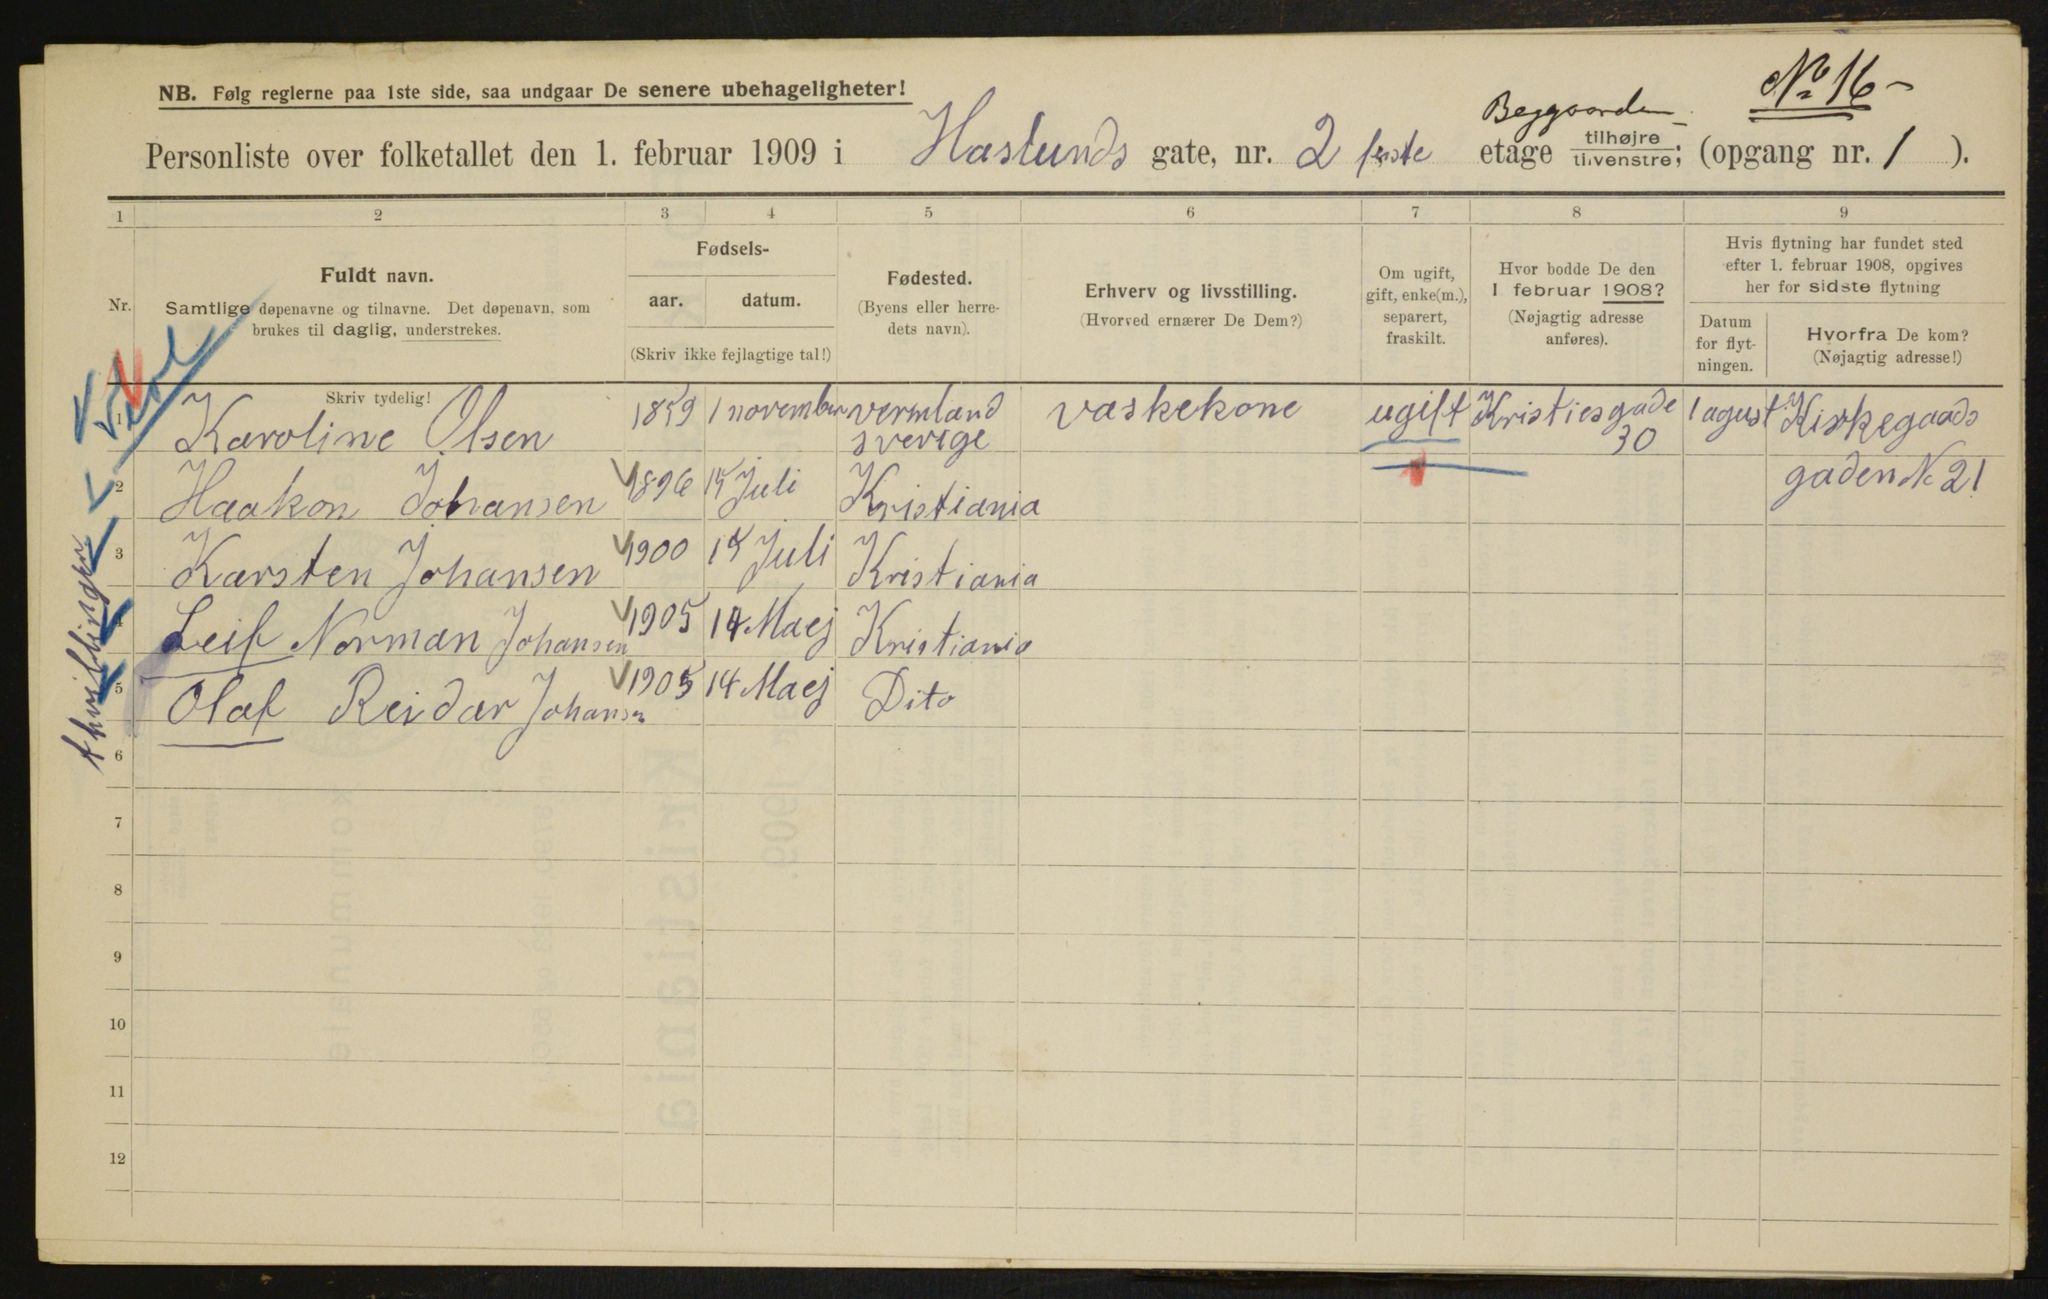 No 16
NB. Følg reglerne paa 1ste side, saa undgaar De senere ubehageligheter!
Baggaarden
Personliste over folketallet den 1. februar 1909 i Haslunds gate, nr. 2 første etage tilhøjre tilvenstre; (opgang nr. 1 ).
1 2 3 4 5 6 7 8 9
Nr.
Fuldt navn.
Samtlige døpenavne og tilnavne. Det døpenavn, som
brukes til daglig, understrekes.
Fødsels-
aar. datum.
(Skriv ikke fejlagtige tal!)
Fødested.
(Byens eller herre-
dets navn).
Erhverv og livsstilling.
(Hvorved ernærer De Dem?)
Om ugift,
gift, enke(m.),
separert,
fraskilt.
Hvor bodde De den
1 februar 1908?
(Nøjagtig adresse
anføres).
Hvis flytning har fundet sted
efter 1. februar 1908, opgives
her for sidste flytning
Datum
for flyt-
ningen.
Hvorfra De kom?
(Nøjagtig adresse!)
Skriv tydelig!
1 Karoline Olsen 1859 1 november vermland sverige vaskekone ugift Kristiesgade 30 1 agust Kirkegaads
2 Haakon Johansen 1896 15 Juli Kristiania gaden No 21
3 Karsten Johansen 1900 15 Juli Kristiania
4 Leif Norman Johansen 1905 14 Maej Kristiania
5 Olaf Reidar Johansen 1905 14 Maej Dito
6
7
8
9
10
11
12